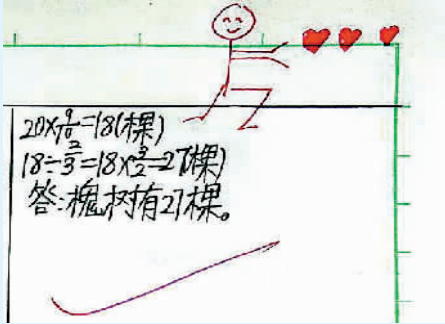 20×9/10=18(棵)
18÷2/3=18×3/2=27(棵)
答:槐树有27棵。